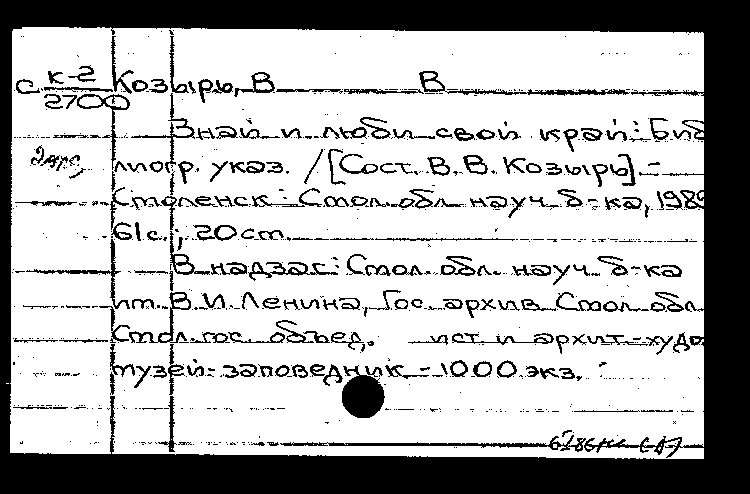 с К-2 Козырь, В В
2700
Знай и люби свой край: Биб
2 экз, лиогр. указ. / [Сост. В. В. Козырь]. -
Смоленск: Смол. обл. науч. б-ка, 1989
61 с.; 20 cm.
В надзаг: Смол. обл. науч. б-ка
им. В. И. Ленина, Гос. архив Смол. обл.
Смол. гос. объед. ист. и архит.-худо
музей-заповедник - 1000 экз. -